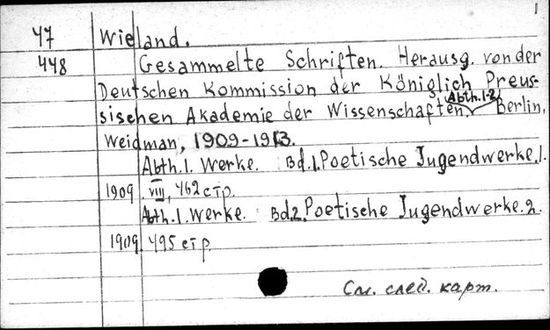 1
47 Wieland.
448 Gesammelte Schriften. Herausg. von der
Deutschen Kommission der Königlich Preus-
sischen Akademie der Wissenschaften. Abth.1-2 Berlin,
Weidman, 1909-1913.
Abth.1. Werke. Bd.1. Poetische Jugendwerke.1.
1909. VIII, 462 стр.
Abth.1. Werke. Bd.2. Poetische Jugendwerke.2.
1909. 495 стр.
См. след. карт.